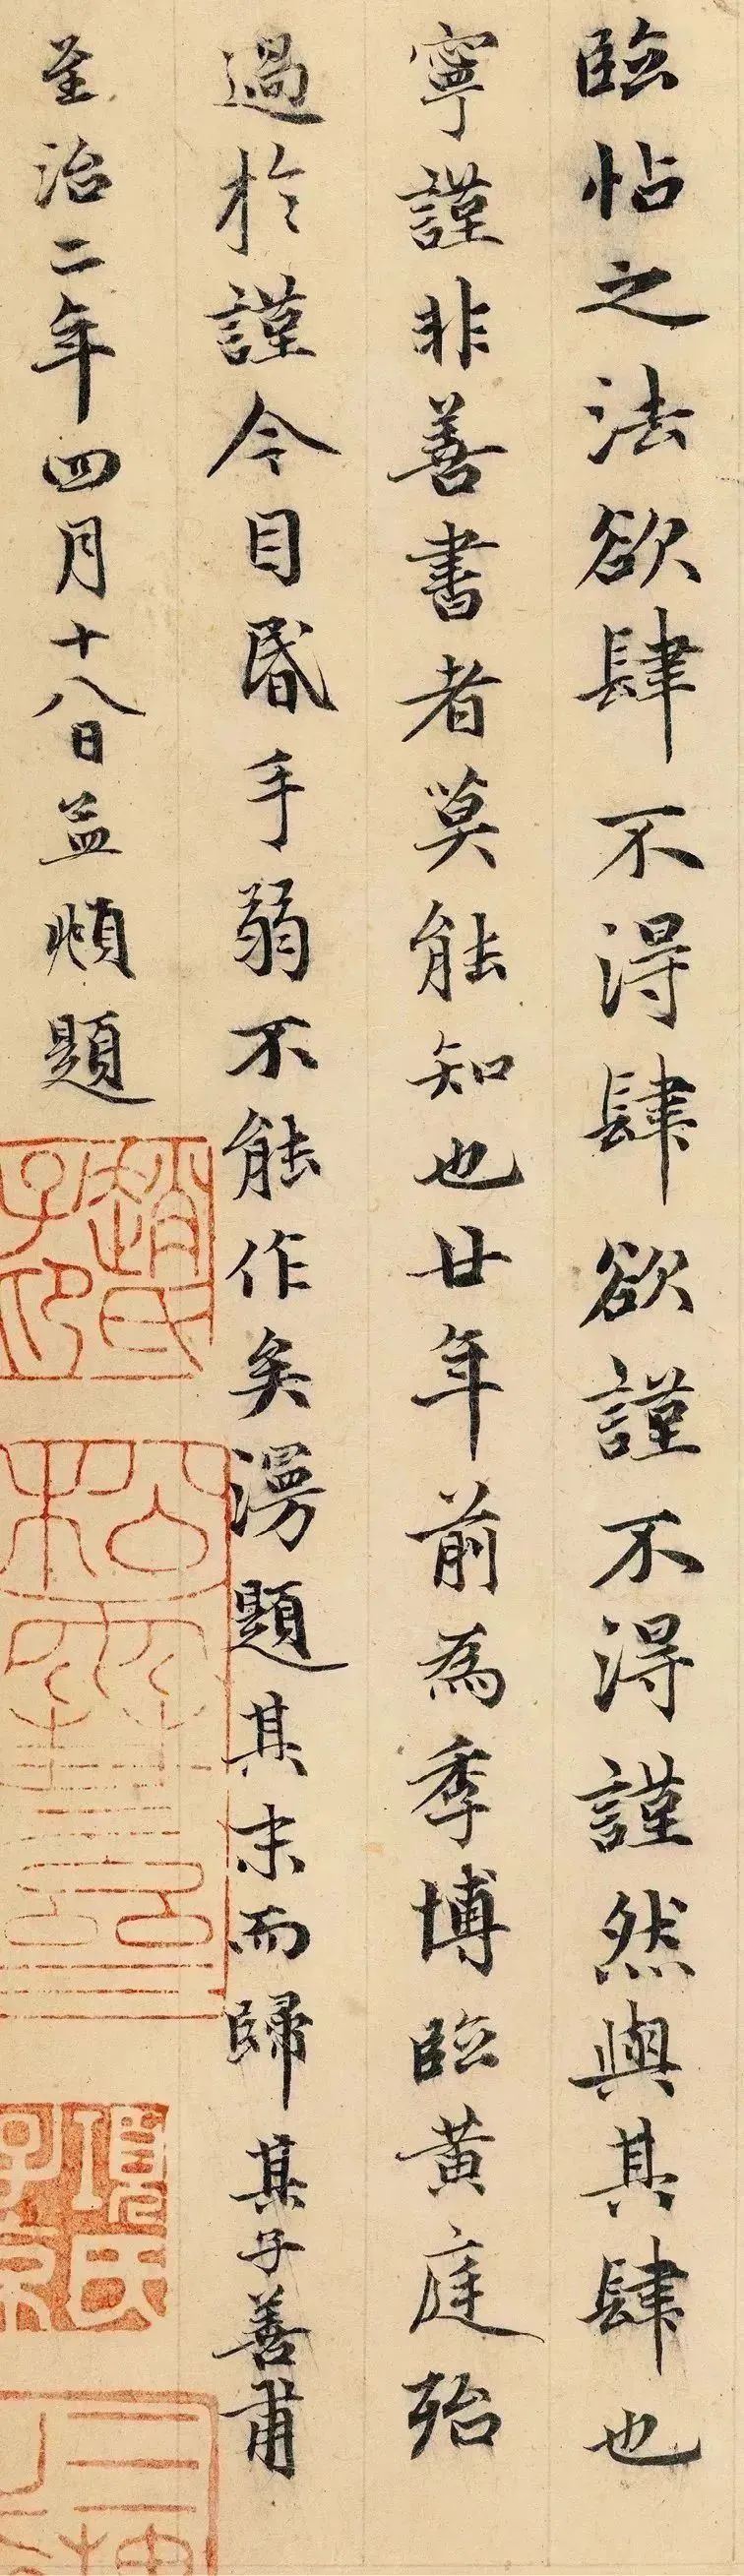 臨帖之法欲肆不得肆欲謹不得謹然與其肆也
寧謹非善書者莫能知也廿年前為季博臨黄庭殆
過於謹今目昏手弱不能作矣漫題其末而歸其子善甫
至治二年四月十八日孟頫題
趙氏子印
項氏子京